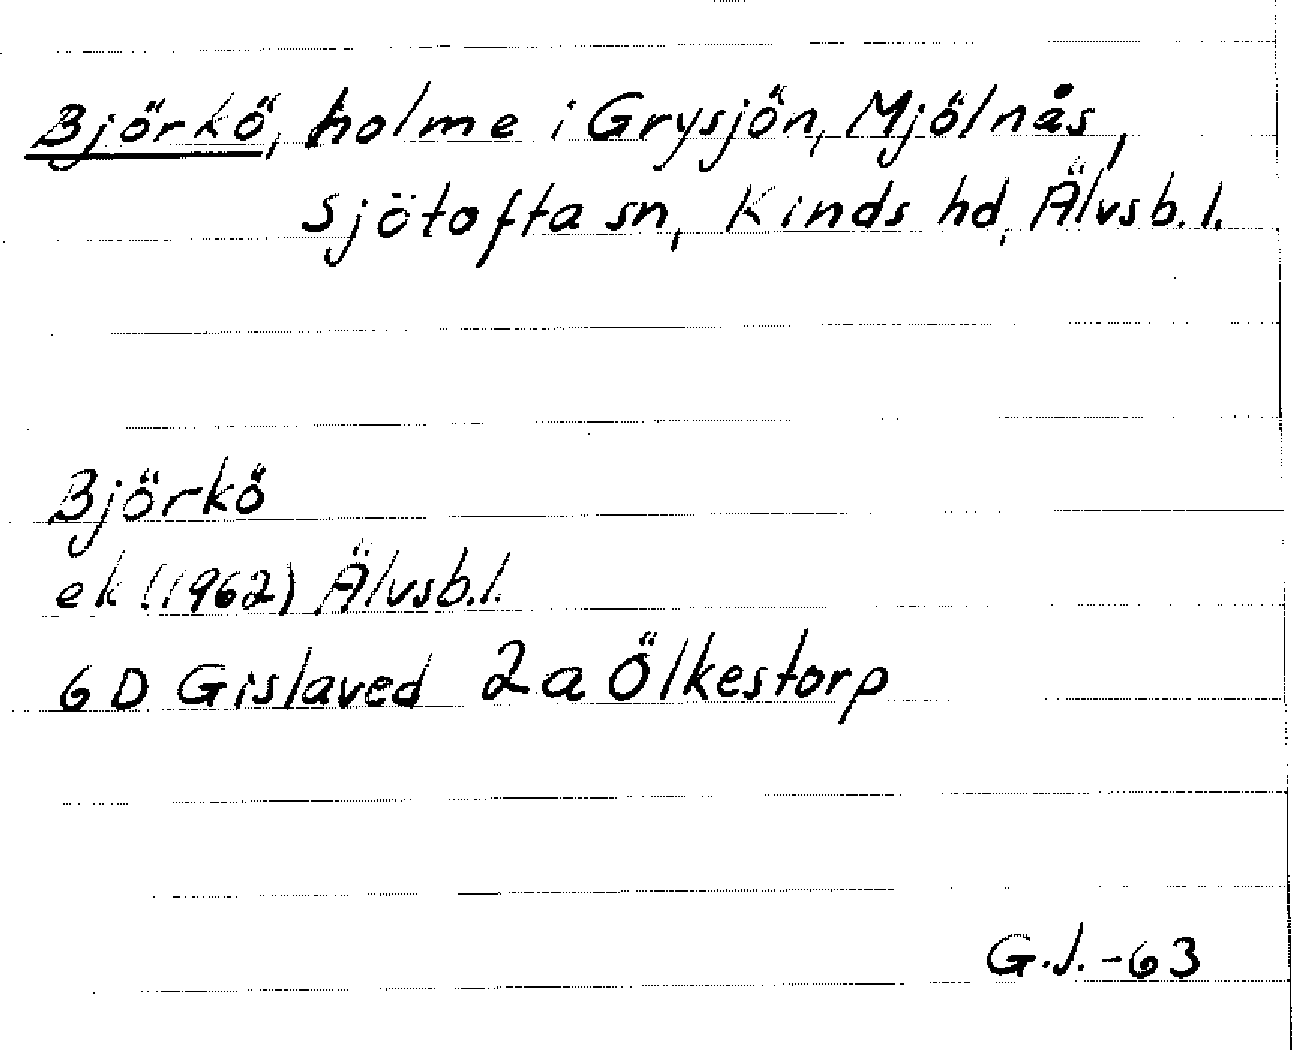 Björkö, holme i Grysjön, Mjölnås,
Sjötofta sn, Kinds hd, Älvsb.l.
Björkö
ek (1962) Älvsb.l.
6D Gislaved 2a Ölkestorp
G.J.-63